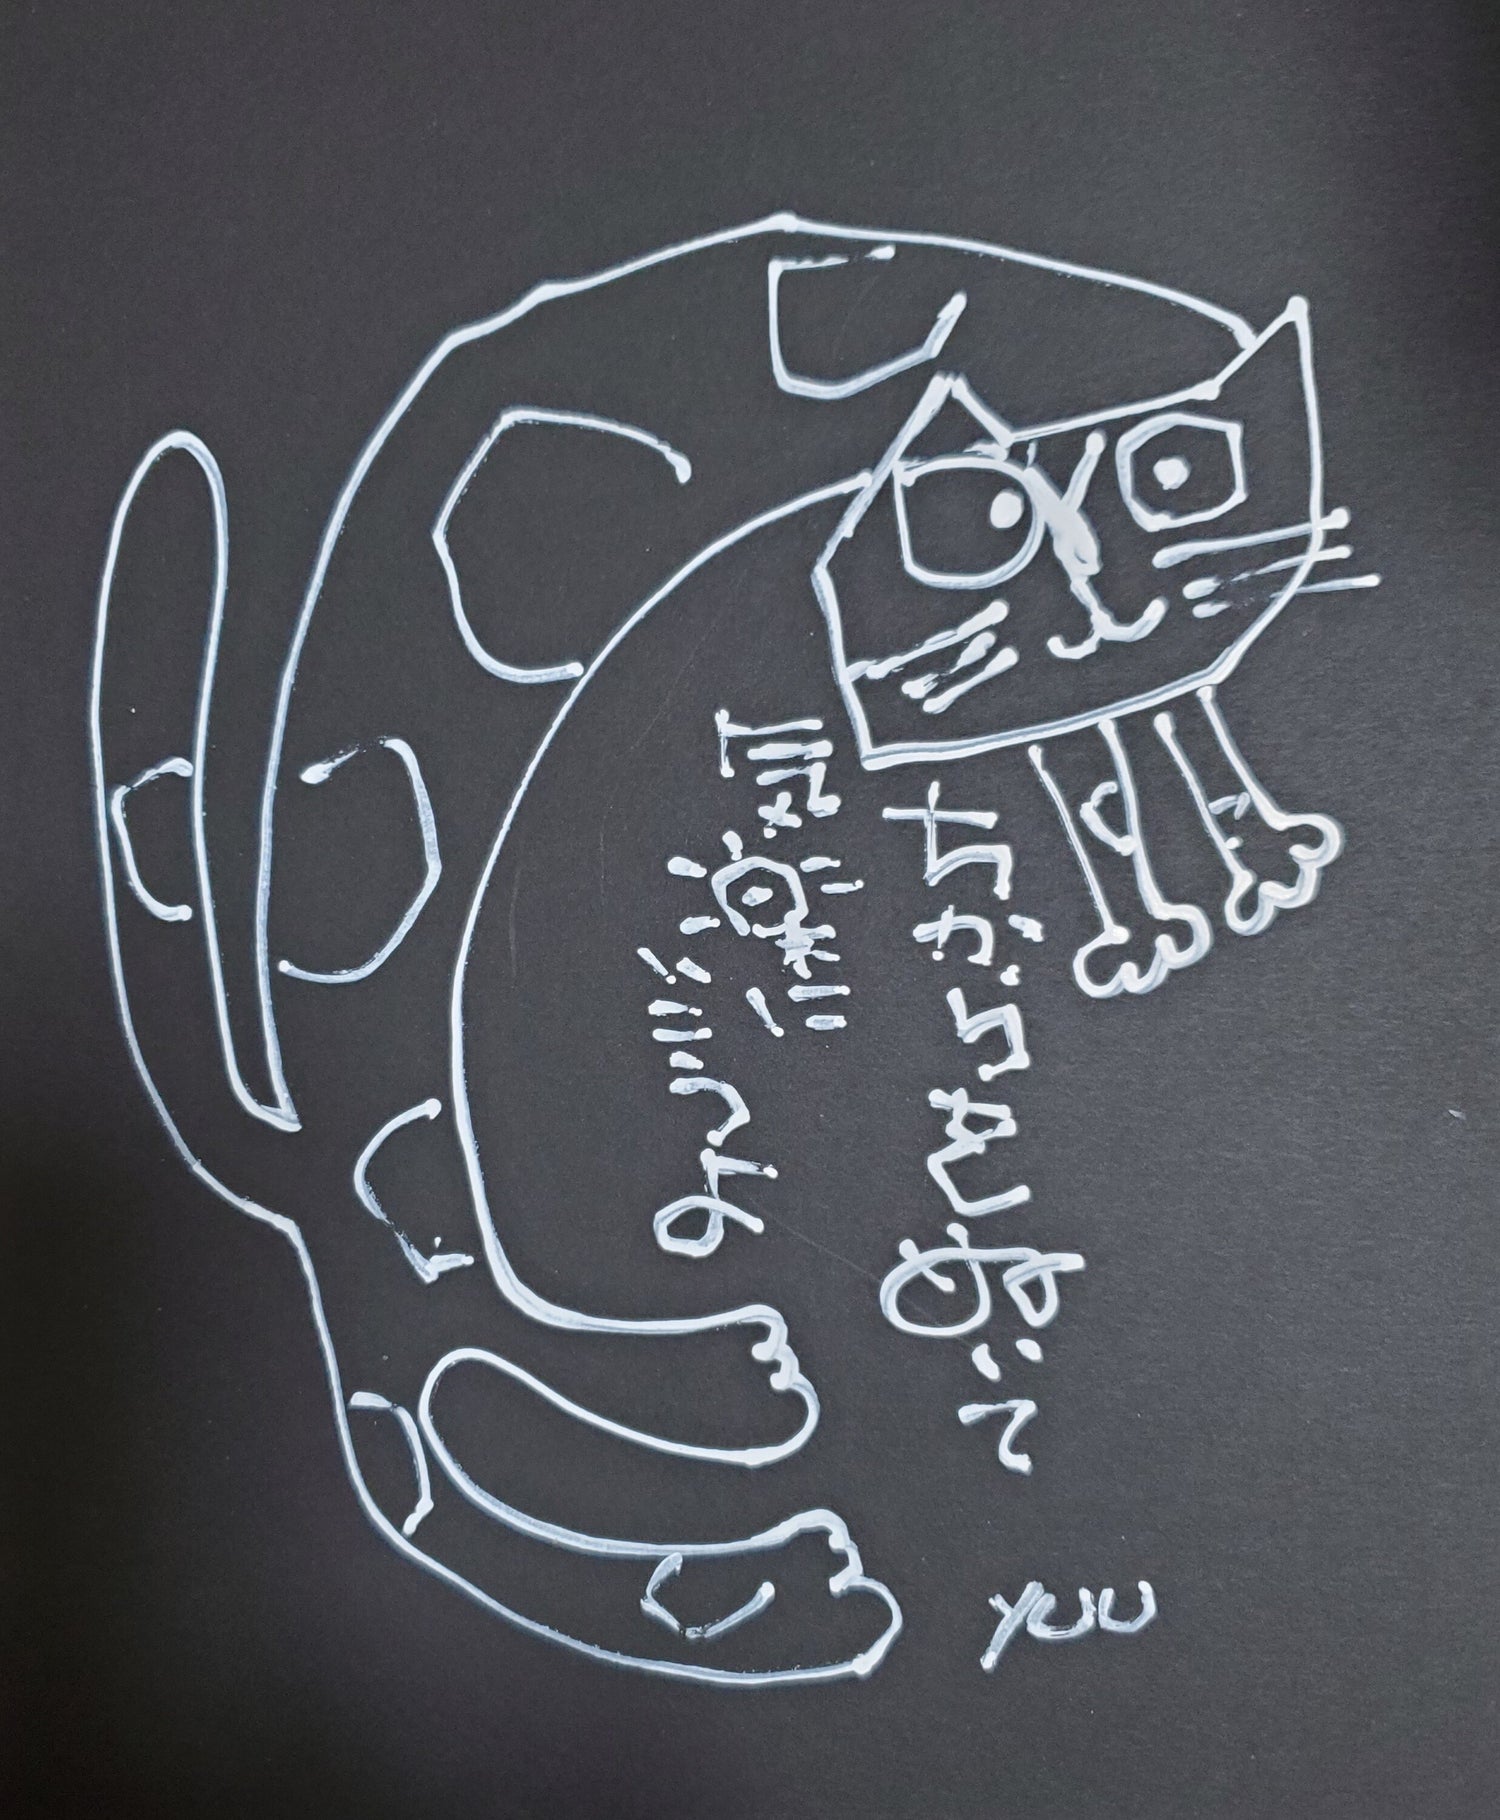 ちからをぬいて
気楽に
いこうね
YUU